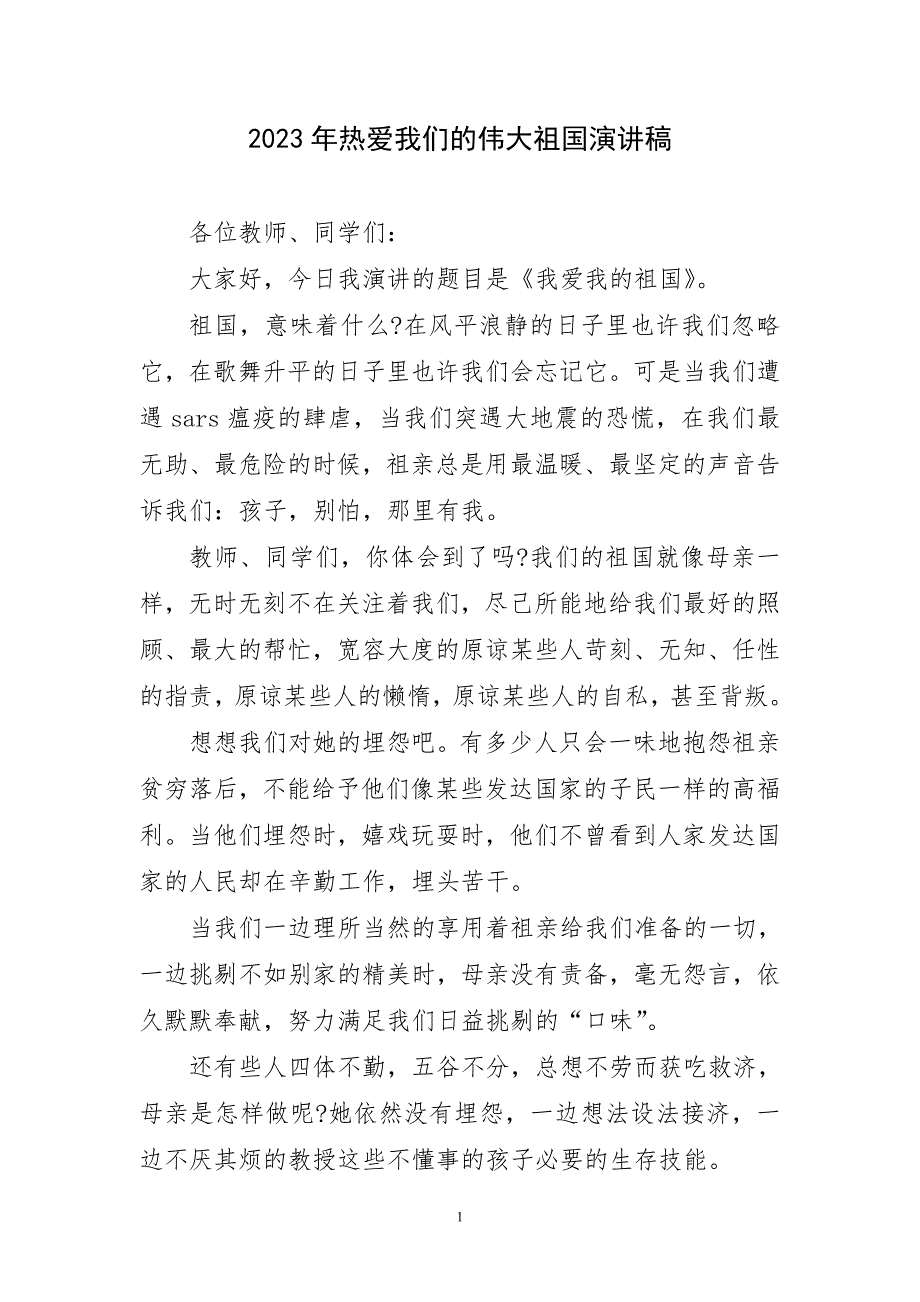 2023年热爱我们的伟大祖国演讲稿
各位教师、同学们：
大家好，今日我演讲的题目是《我爱我的祖国》。
祖国，意味着什么?在风平浪静的日子里也许我们忽略
它，在歌舞升平的日子里也许我们会忘记它。可是当我们遭
遇 sars 瘟疫的肆虐，当我们突遇大地震的恐慌，在我们最
无助、最危险的时候，祖亲总是用最温暖、最坚定的声音告
诉我们：孩子，别怕，那里有我。
教师、同学们，你体会到了吗?我们的祖国就像母亲一
样，无时无刻不在关注着我们，尽己所能地给我们最好的照
顾、最大的帮忙，宽容大度的原谅某些人苛刻、无知、任性
的指责，原谅某些人的懒惰，原谅某些人的自私，甚至背叛。
想想我们对她的埋怨吧。有多少人只会一味地抱怨祖亲
贫穷落后，不能给予他们像某些发达国家的子民一样的高福
利。当他们埋怨时，嬉戏玩耍时，他们不曾看到人家发达国
家的人民却在辛勤工作，埋头苦干。
当我们一边理所当然的享用着祖亲给我们准备的一切，
一边挑剔不如别家的精美时，母亲没有责备，毫无怨言，依
久默默奉献，努力满足我们日益挑剔的“口味”。
还有些人四体不勤，五谷不分，总想不劳而获吃救济，
母亲是怎样做呢?她依然没有埋怨，一边想法设法接济，一
边不厌其烦的教授这些不懂事的孩子必要的生存技能。
1